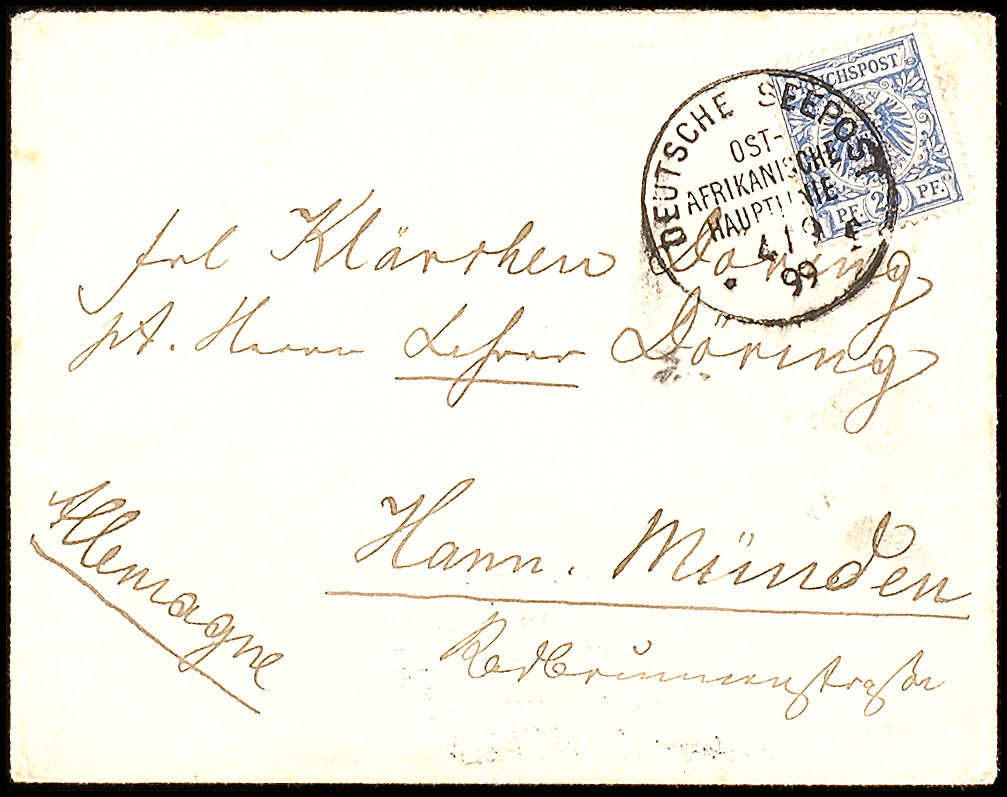 REICHSPOST
PF. 20 PF.
DEUTSCHE SEEPOST
OST-
AFRIKANISCHE
HAUPTLINIE
4/9
99
frl Klärchen Döring
pA. Herrn Lehrer Döring
Allemagne
Hann. Münden
Radbrunnenstraße